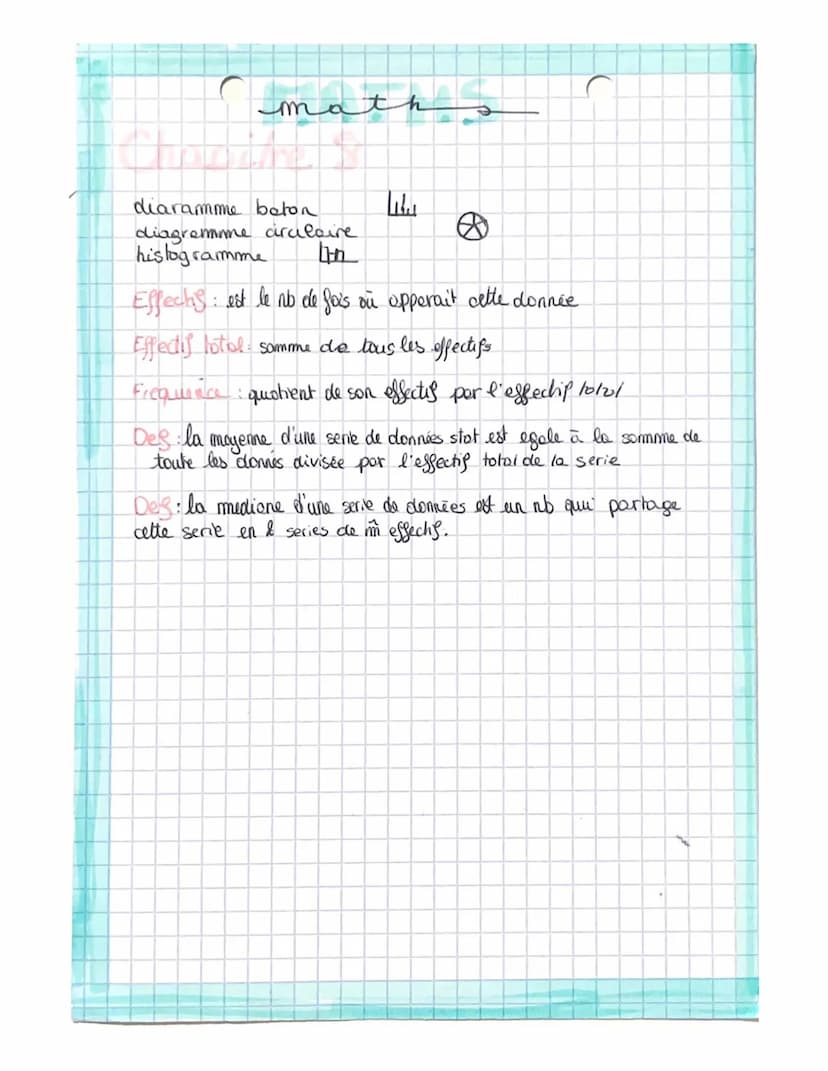 maths
Chapitre 8
diaramme baton
diagramme circulaire
histogramme
Effectif : est le nb de fois où apparait cette donnée
Effectif total : somme de tous les effectifs
Frequence : quotient de son effectif par l'effectif total
Def : la moyenne d'une serie de données stat est egale à la somme de
toute les donnés divisée par l'effectif total de la serie
Def : la mediane d'une serie de données est un nb qui partage
cette serie en 2 series de m̂ effectif.